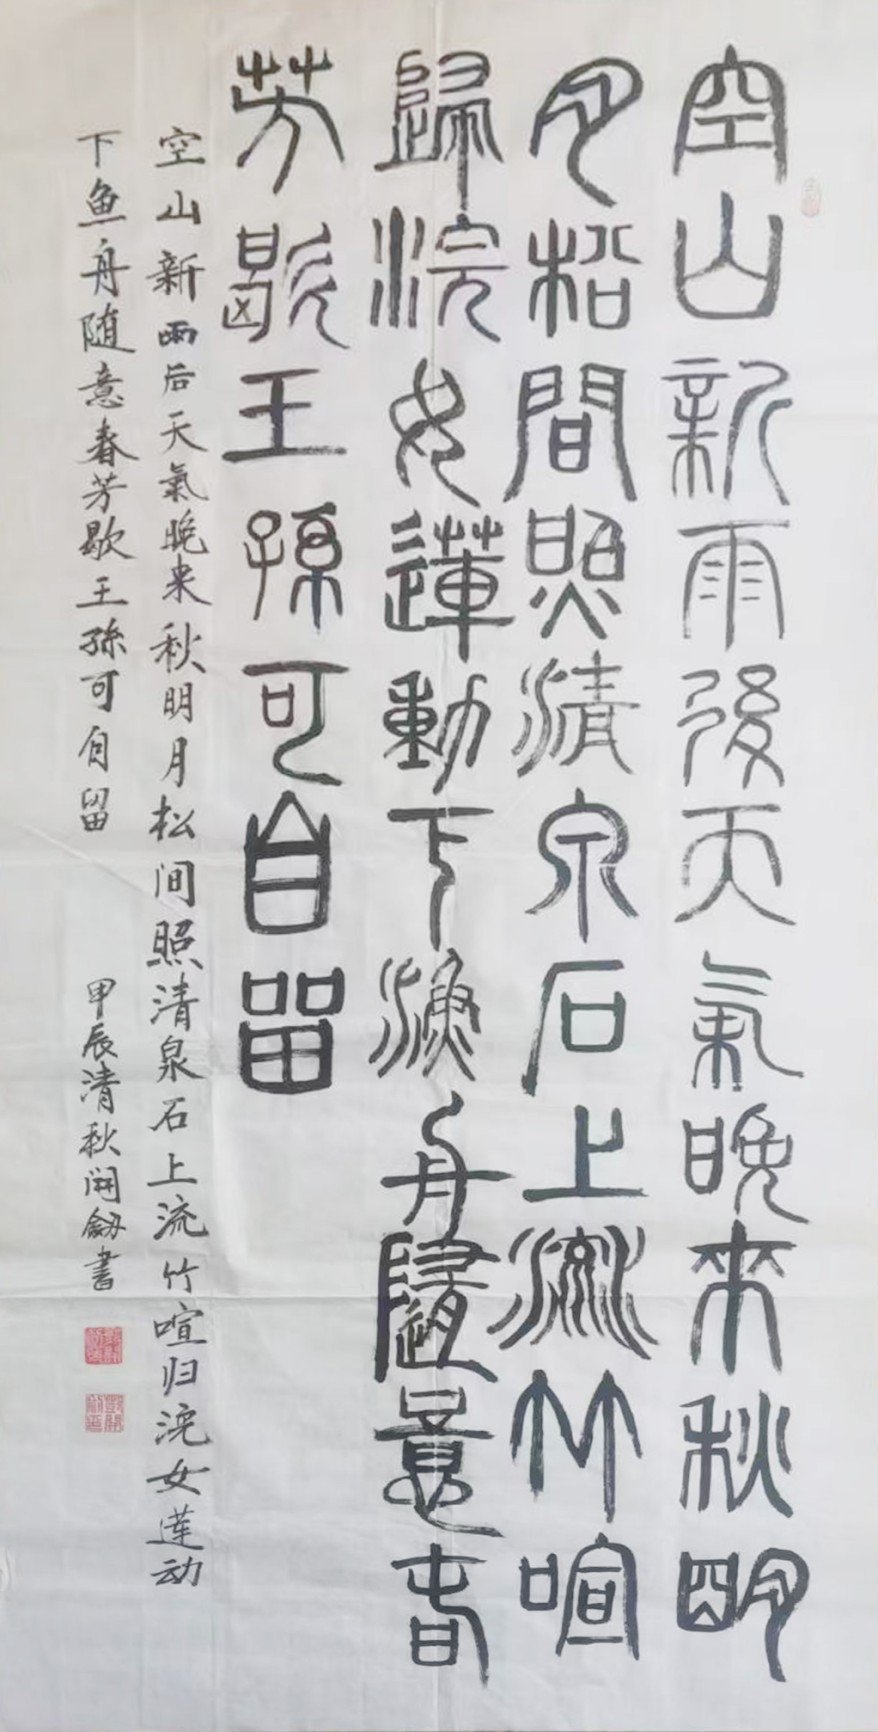 空山新雨後天氣晚来秋明
月松間照清泉石上流竹喧
歸浣女蓮動下漁舟隨意春
芳歇王孫可自留
空山新雨后天氣晚来秋明月松间照清泉石上流竹喧归浣女莲动
下鱼舟随意春芳歇王孫可自留 甲辰清秋開劒書